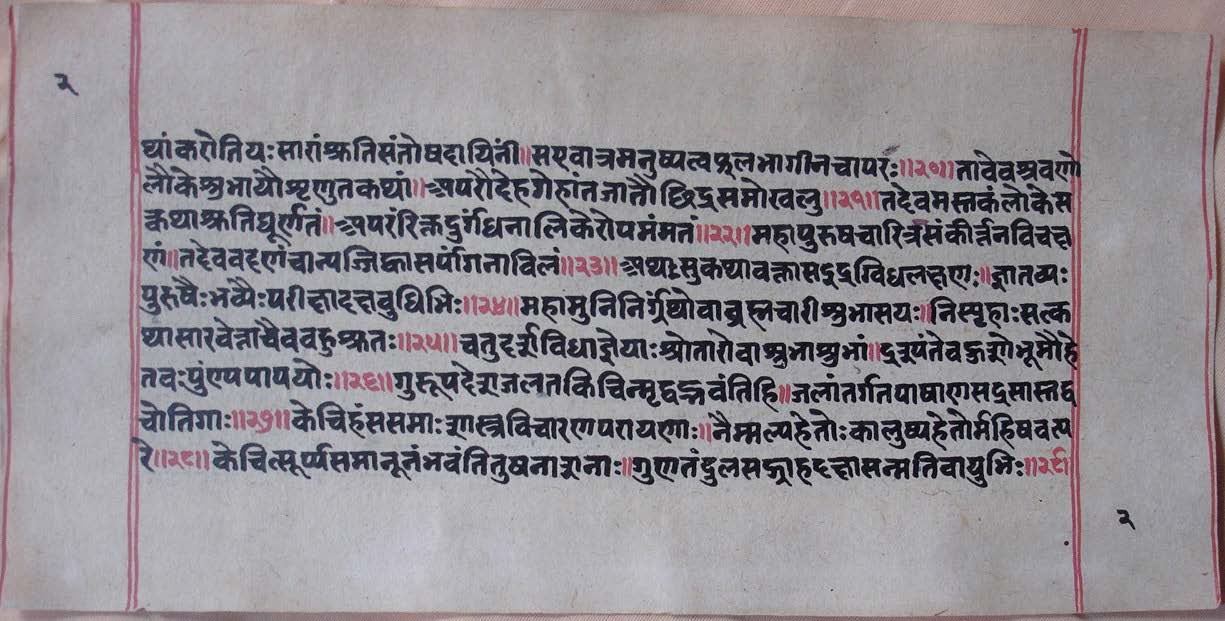 २
थां करोति यः सारां श्रुतिसंतोषदायिनीं॥ स एवात्र मनुष्यत्वफलभागी न चापरः॥२०॥ तावेव श्रवणौ
लौके शुभा यौ शृणुत कथां॥ अपरौ देहगेहांतजातौ छिद्रसमो खलु॥२१॥ तदेव मस्तकं लोके स
कथाश्रुतिघूर्णितं॥ अपरं रिक्तदुर्गंधनालिकेरोपमं मतं॥२२॥ महापुरुषचारित्रसंकीर्त्तनविचक्ष
णं॥ तदेव वदणं चान्यज्जिह्वासर्पांगनाविलं॥२३॥ अथः सुकथावक्ता सदृदृग्विधलक्षणः॥ ज्ञातव्यः
पुरुषैः भव्यैः परीक्षादक्षबुधिभिः॥२४॥ महामुनिनिर्ग्रंथो वा ब्रह्मचारी शुभासयः॥ निस्पृहाः सत्क
थासारवेत्ता चैव वहुश्रुतः॥२५॥ चतुदर्श विधा ज्ञेयाः श्रोतारो वा शुभाशुभां॥ भूमौ हे
तवः पुंण्यपापयोः॥२६॥ गुरूपदेशजलत किंचिन्मृद्वद्भवंति हि॥ जलांतर्गतपाषाणसदृसास्तद्व
चोतिगाः॥२७॥ केचिहंससमाः शास्त्रविचारणपरायणाः॥ नैर्म्मल्यहेतोः कालुष्यहेतोर्महिषवत्प
रे॥२८॥ केचित्सूर्प्पसमा नूनं भवंति तुषनाशनाः॥ गुणतंदुलसद्ग्राहदक्षा सन्मतिवायुभिः॥२९
२